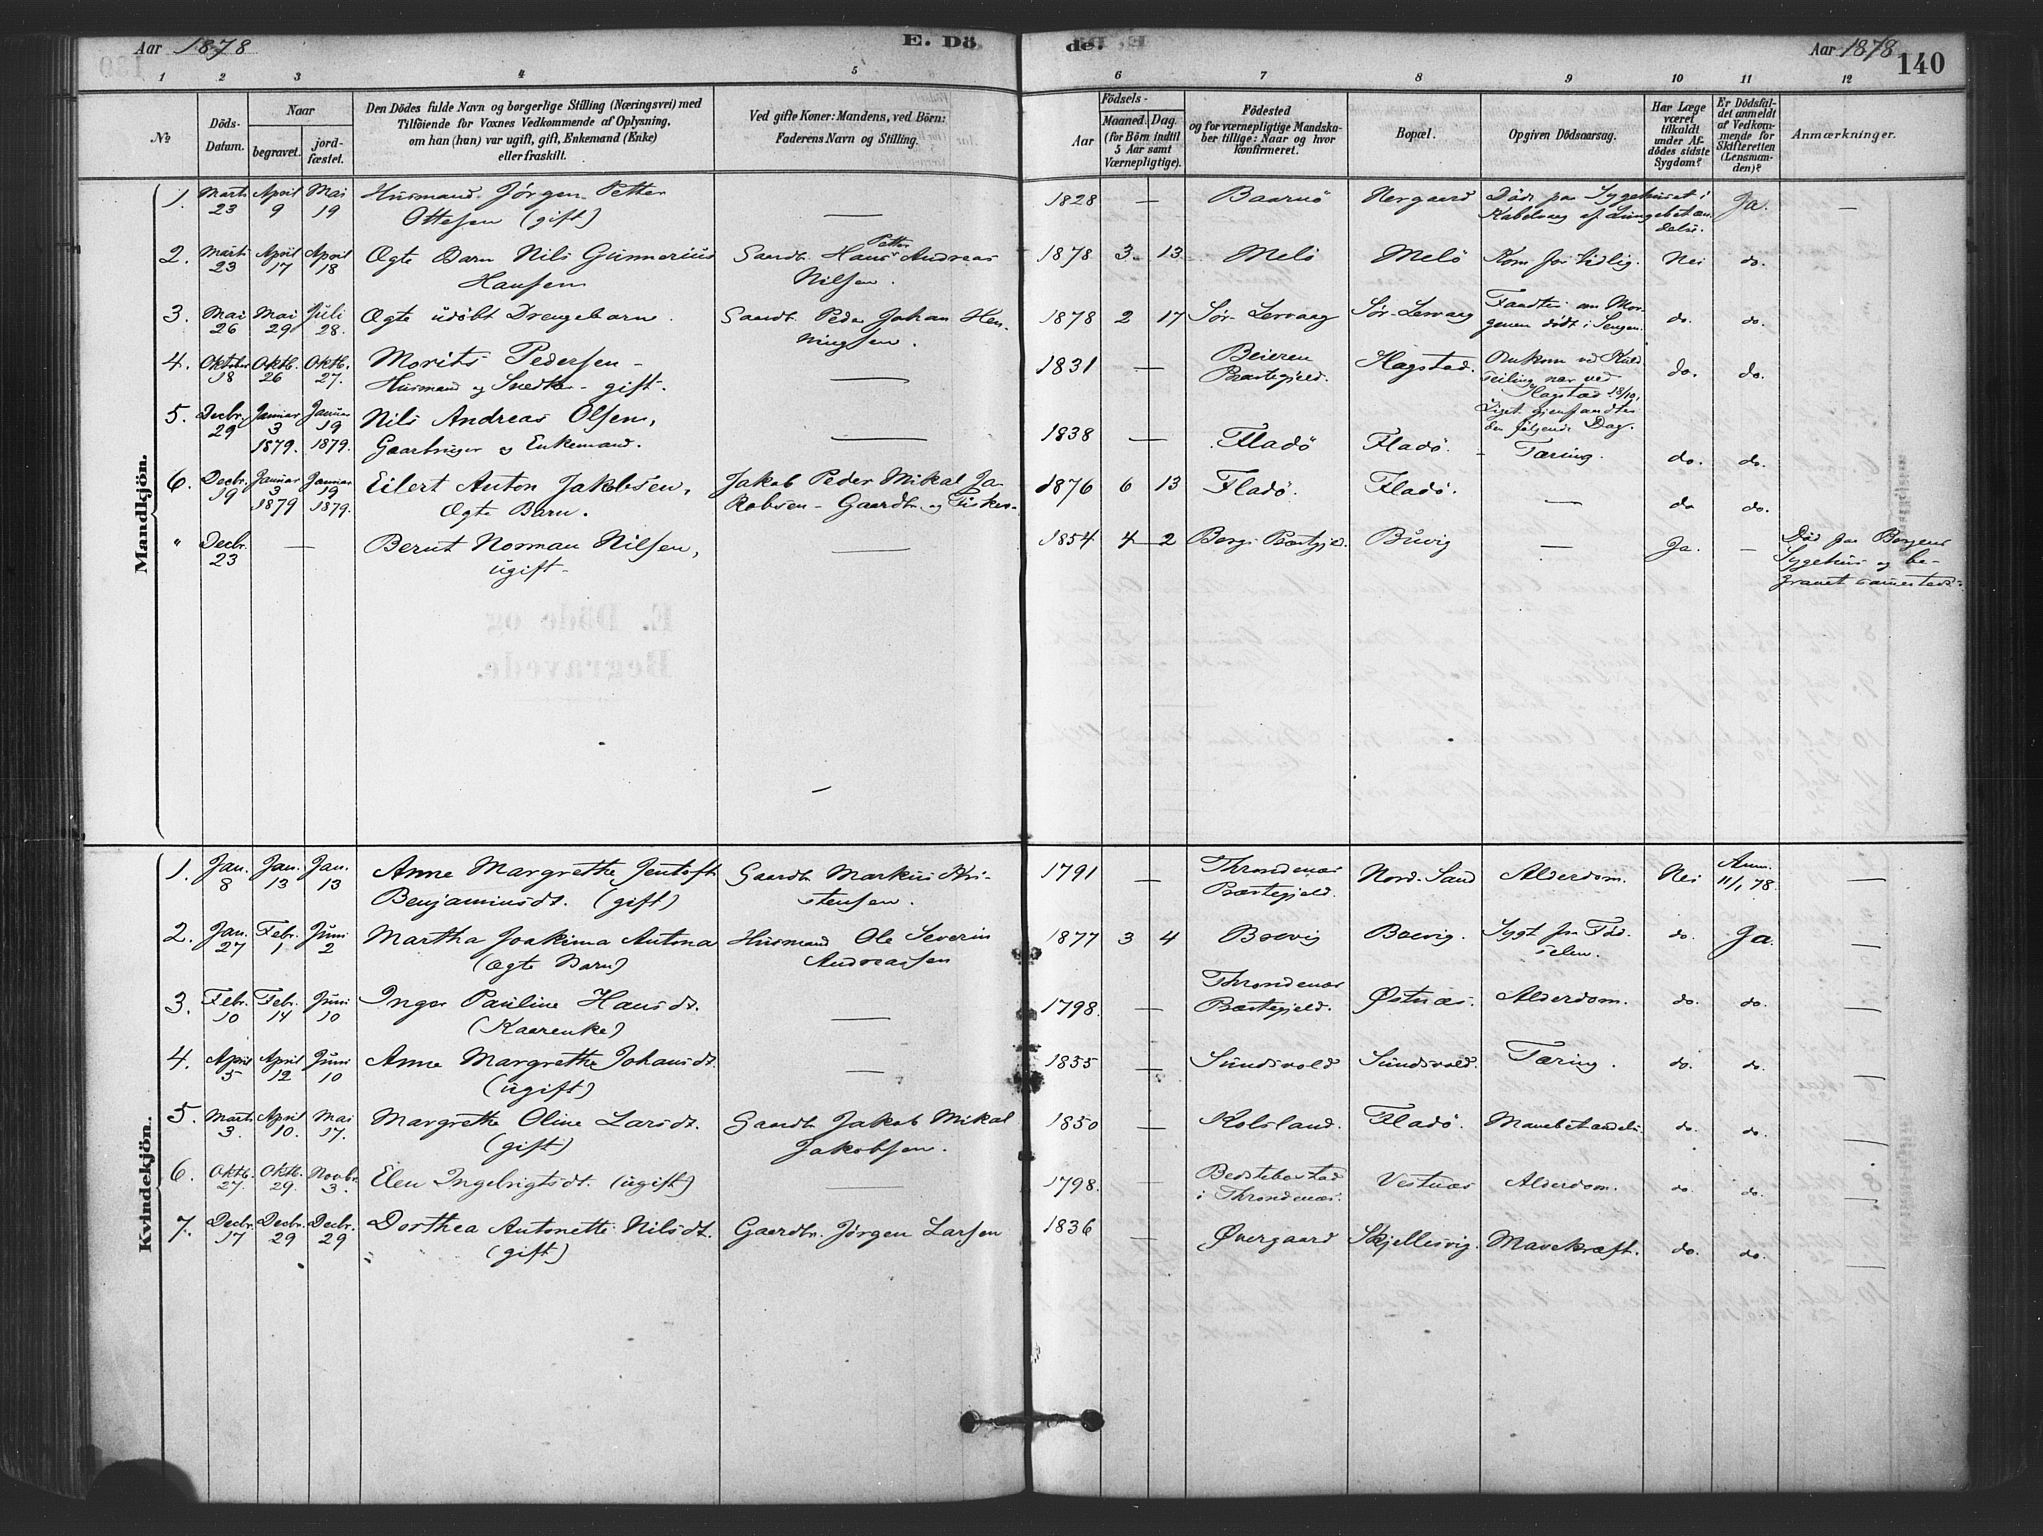 Aar 1878 E. Dö de. Aar 1878. 140
1 2 3 4 5 6 7 8 9 10 11 12
№ Döds-Datum. Naar begravet. jordfæstet. Den Dödes fulde Navn og borgerlige Stilling (Næringsvei) med Tilföiende for Voxnes Vedkommende af Oplysning, om han (hun) var ugift, gift, Enkemand (Enke) eller fraskilt. Ved gifte Koner: Mandens, ved Börn: Faderens Navn og Stilling. Födsels- Aar Maaned. Dag. (for Börn indtil 5 Aar samt Værnepligtige). Födested og for værnepligtige Mandskaber tillige: Naar og hvor konfirmeret. Bopæl. Opgiven Dödsaarsag. Har Læge været tilkaldt under Afdödes sidste Sygdom? Er Dödsfaldet anmeldt af Vedkommende for Skifteretten (Lensmanden)? Anmærkninger.
Mandkjön.
1. Marts 23 April 9 Mai 19 Husmand Jørgen Petter Ottesen (gift) — 1828 — Baarnö Nergaard Död paa Sygehuset i Kabelvaag af Lungebetændelse. Ja. —
2. Marts 23 April 17 April 18 Ægte Barn Nils Gunnerius Hansen Gaardb. Hans Petter Andreas Nilsen. 1878 3 13 Melö Melö Kom for tidlig. Nei do.
3. Mai 26 Mai 29 Juli 28. Ægte udöbt Drengebarn. Gaardb. Peder Johan Henningsen. 1878 2 17 Sör-Lervaag Sör-Lervaag Fandtes om Morgenen dødt i Sengen. do. do.
4. Oktober 18 Oktb. 26 Oktb. 27. Morits Pedersen — Husmand og Snedker — gift. — 1831 — Beieren Præstegjeld. Hagstad. Omkom ved Kuldseiling nær ved Hagstad 18/10, Liget gjenfandtes den følgende Dag. do. do.
5. Decbr. 29 Januar 3 1879. Januar 19 1879. Nils Andreas Olsen, Gaardbruger og Enkemand. — 1838 — Fladö Fladö. Tæring. do. do.
6. Decbr. 19 Januar 3 1879 Januar 19 1879. Eilert Anton Jakobsen, Ægte Barn. Jakob Peder Mikal Jakobsen — Gaardb. og Fisker. 1876 6 13 Fladö. Fladö. — do do.
" Decbr. 23 — Bernt Norman Nilsen, ugift — — 1854 4 2 Borge Præstgjeld. Buvig — Ja. — Död paa Bergens Sygehus og begravet sammesteds.
E. Döde og
Begravede.
Kvindekjön.
1. Jan. 8 Jan. 13 Jan. 13 Anne Margrethe Jentoft Benjaminsdt. (gift) Gaardb. Markus Kristensen. 1791 — Throndenæs Præstegjeld. Nord-Sand Alderdom. Nei Anm. 11/1 78. —
2. Jan. 27 Febr. 1 Juni 2 Martha Joakima Antona (ægte Barn) Husmand Ole Severin Andreassen 1877 3 4 Bævig Bævig. Sygt fra Fødselen. do. Ja. —
3. Febr. 10 Febr. 14 Juni 10 Inger Pauline Hansdt. (Kaarenke) — 1798. — Throndenæs Præstegjeld. Østnæs. Alderdom. do. do. —
4. April 5 April 12 Juni 10 Anne Margrethe Johansdt. (ugift) — 1855 — Sundsvold Sundsvold. Tæring. do. do. —
5. Marts 3. April 10. Mai 17. Margrethe Oline Larsdt. (gift) Gaardb. Jakob Mikal Jakobsen. 1850 — Kolsland. Fladö. Mavebetændelse do. do. —
6. Oktb. 27. Oktb. 29. Novbr. 3. Elen Ingebrigtsdt. (ugift) — 1798. — Bedstebostad i Throndenæs. Vestnæs Alderdom. do. do. —
7. Decbr. 17 Decbr. 29 Decbr. 29 Dorthea Antonette Nilsdt. (gift) Gaardbr. Jørgen Larsen 1836 — Øvergaard Skjellesvig. Mavekræft. do. do. —